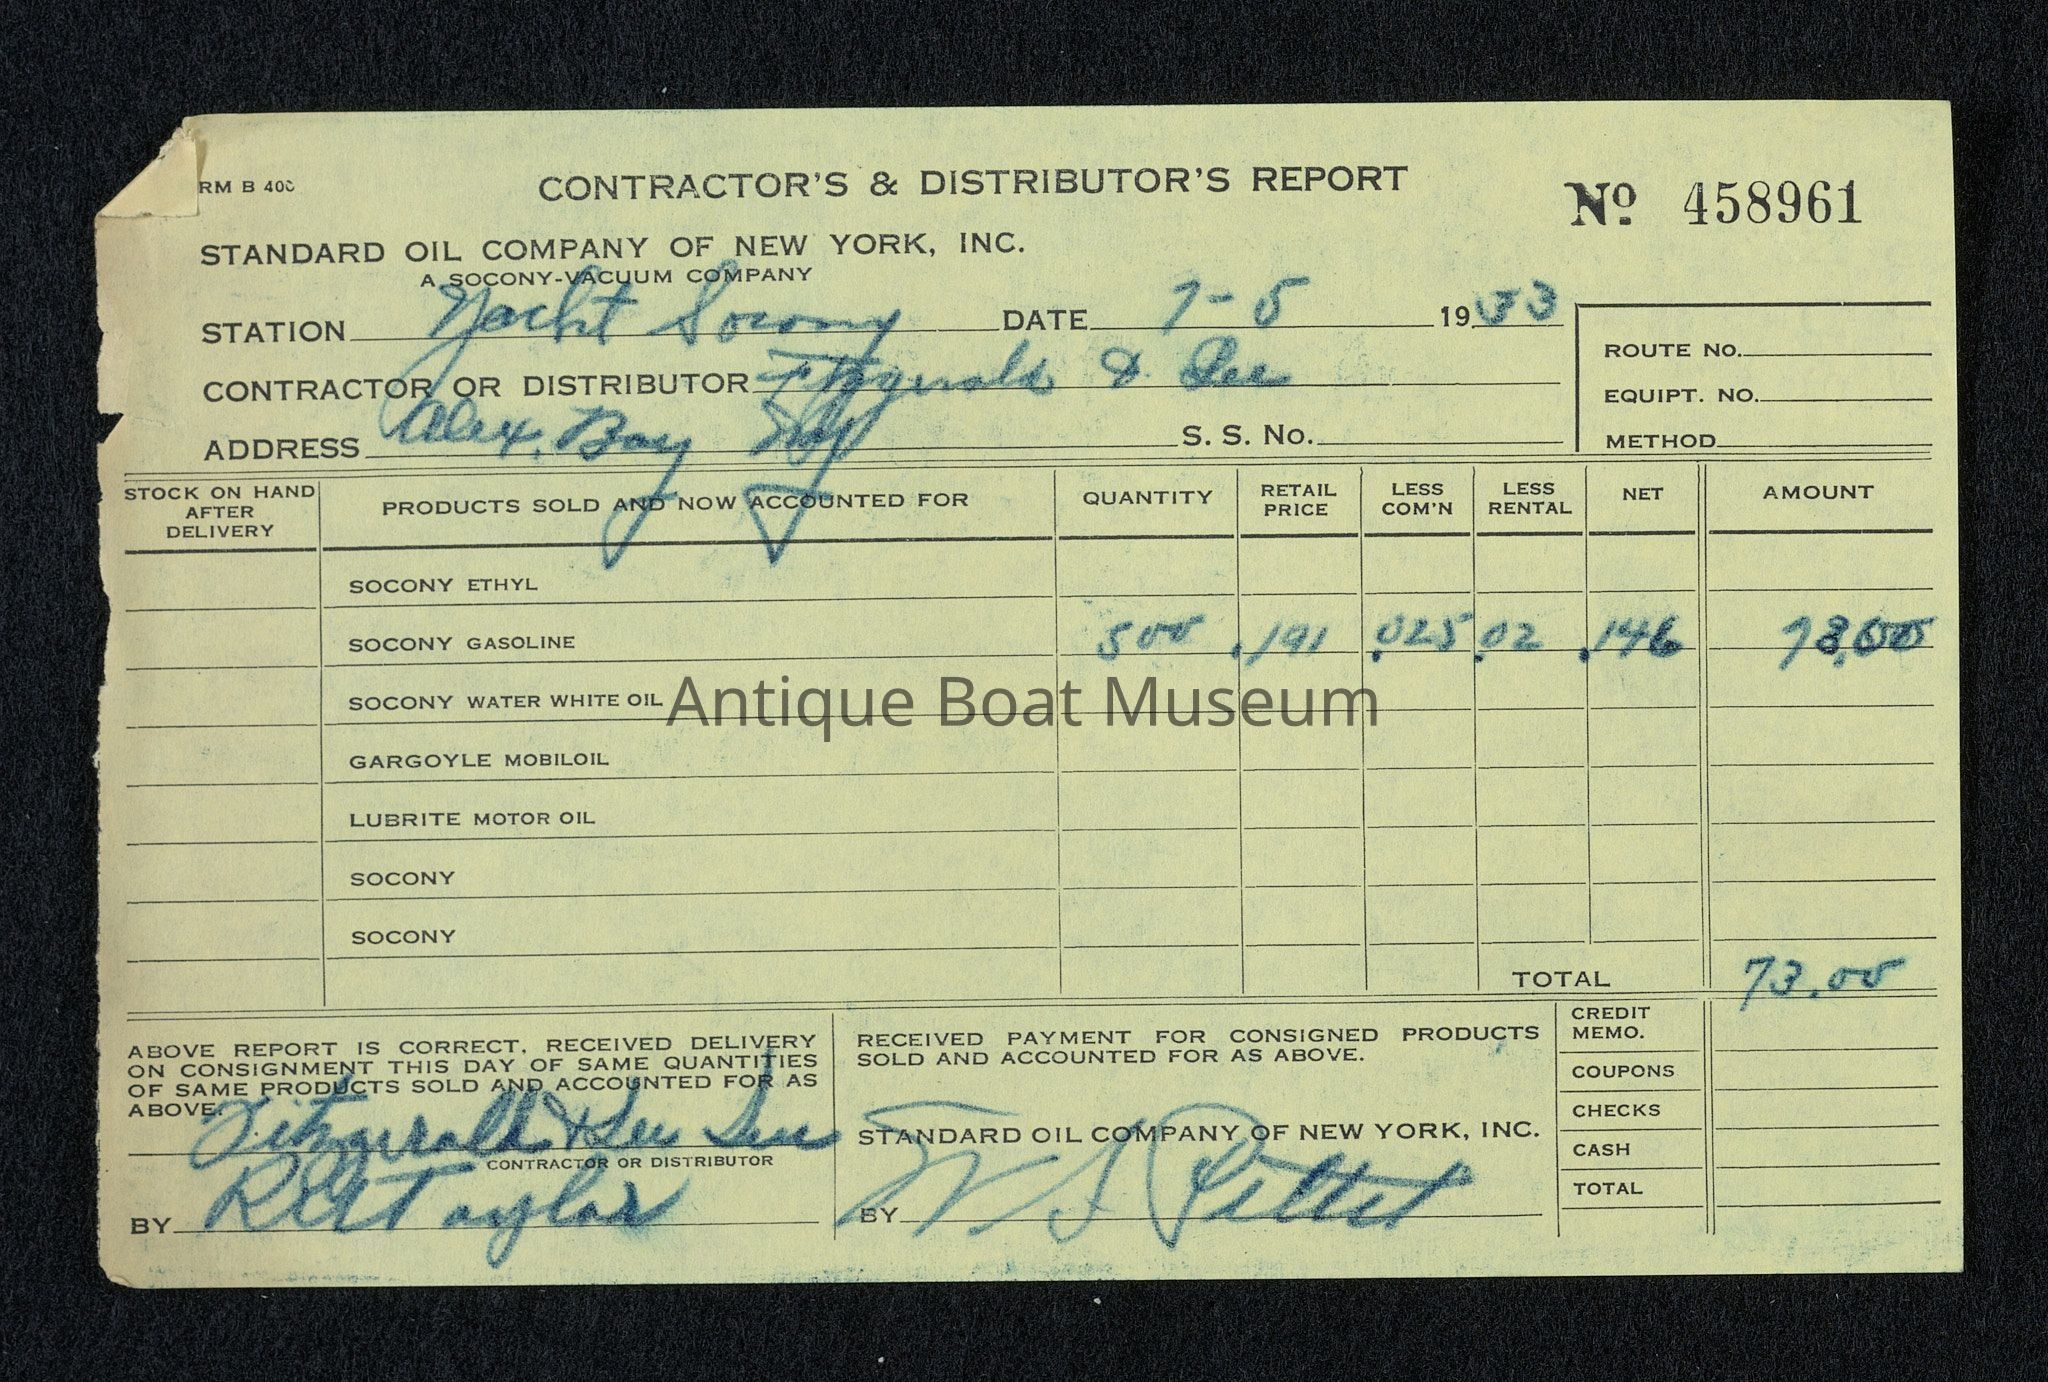 RM B 400
CONTRACTOR'S & DISTRIBUTOR'S REPORT
No 458961
STANDARD OIL COMPANY OF NEW YORK, INC.
A SOCONY-VACUUM COMPANY
STATION Yacht Socony DATE 7-5 1933
ROUTE No.
CONTRACTOR OR DISTRIBUTOR Fitzgerald & Lee
EQUIPT. NO.
ADDRESS Alex. Bay NY S. S. No.
METHOD
STOCK ON HAND AFTER DELIVERY PRODUCTS SOLD AND NOW ACCOUNTED FOR QUANTITY RETAIL PRICE LESS COM'N LESS RENTAL NET AMOUNT
SOCONY ETHYL
SOCONY GASOLINE 500 .191 .025 .02 .146 73.00
SOCONY WATER WHITE OIL
Antique Boat Museum
GARGOYLE MOBILOIL
LUBRITE MOTOR OIL
SOCONY
SOCONY
TOTAL 73.00
ABOVE REPORT IS CORRECT, RECEIVED DELIVERY
ON CONSIGNMENT THIS DAY OF SAME QUANTITIES
OF SAME PRODUCTS SOLD AND ACCOUNTED FOR AS
ABOVE.
Fitzgerald & Lee
CONTRACTOR OR DISTRIBUTOR
BY Taylor
RECEIVED PAYMENT FOR CONSIGNED PRODUCTS
SOLD AND ACCOUNTED FOR AS ABOVE.
STANDARD OIL COMPANY OF NEW YORK, INC.
BY
CREDIT MEMO.
COUPONS
CHECKS
CASH
TOTAL